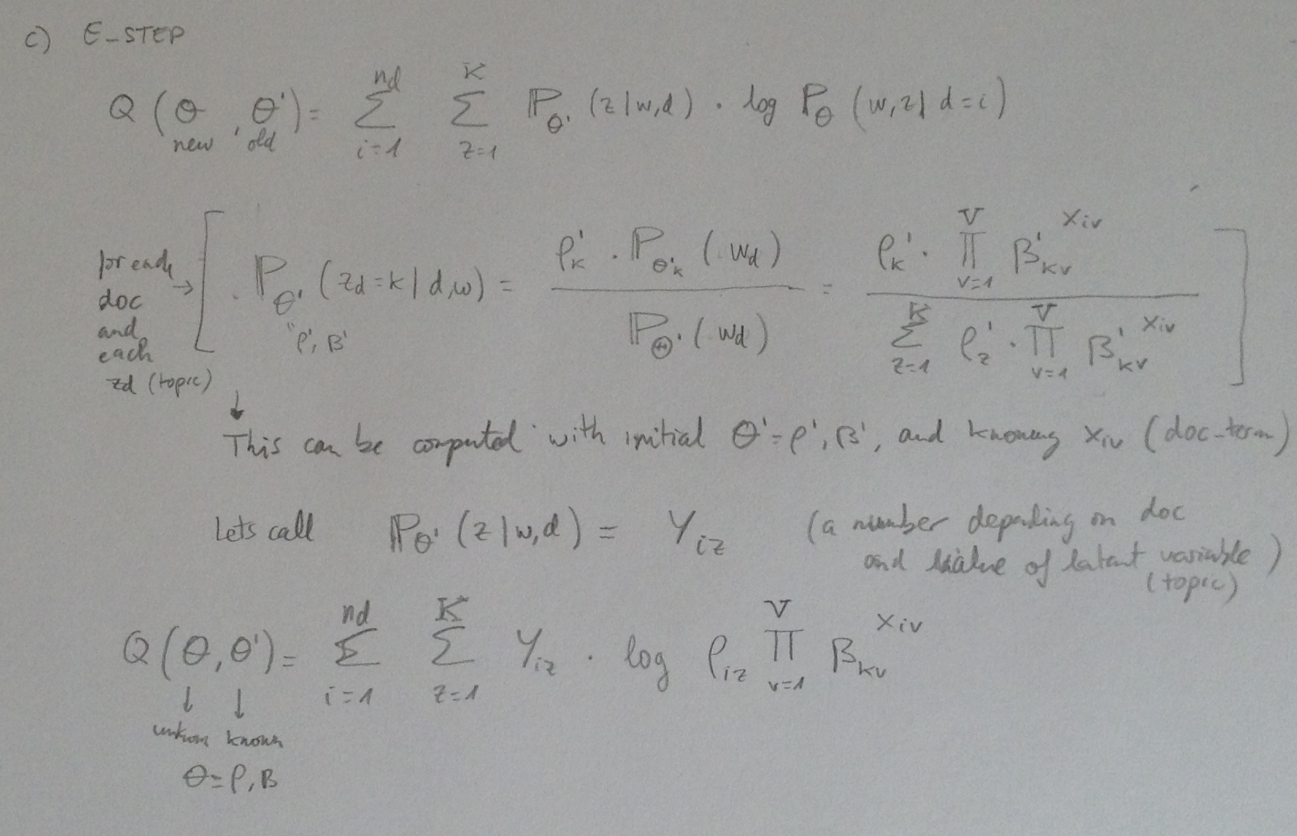 c) E-STEP
Q(θ, θ') = Σ_{i=1}^{nd} Σ_{z=1}^{K} ℙ_{θ'}(z|w,d) · log ℙ_θ(w,z|d=i)
new old
for each doc and each zd (topic) → [ ℙ_{θ'}(zd=k|d,w) = ρ'_k · ℙ_{θ'_k}(wd) / ℙ_{Θ'}(wd) = ρ'_k · Π_{v=1}^{V} β'_{kv}^{xiv} / Σ_{z=1}^{K} ρ'_z · Π_{v=1}^{V} β'_{kv}^{xiv} ]
"ρ', β'
↓
This can be computed with initial θ'=ρ', β', and knowing xiv (doc-term)
Lets call ℙ_{θ'}(z|w,d) = Y_{iz} (a number depending on doc
and value of latent variable)
(topic)
Q(θ,θ') = Σ_{i=1}^{nd} Σ_{z=1}^{K} Y_{iz} · log ρ_{iz} Π_{v=1}^{V} β_{kv}^{xiv}
↓ ↓
unknown known
θ=ρ,β